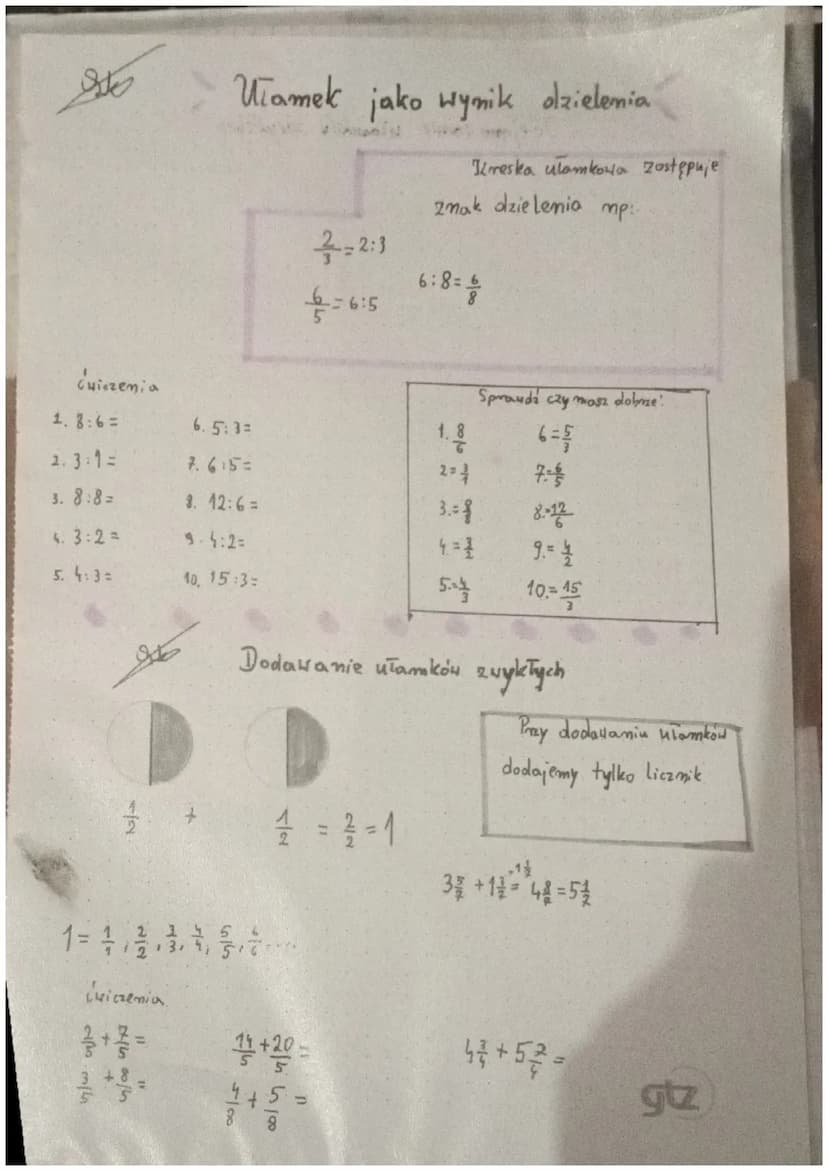 Ułamek jako wynik dzielenia
Kreska ułamkowa zostępuje
znak dzielenia np:
2/3 = 2:3
6:8 = 6/8
6/5 = 6:5
Ćwiczenia
1. 8:6=
2. 3:1=
3. 8:8=
4. 3:2=
5. 4:3=
6. 5:3=
7. 6:5=
8. 12:6=
9. 4:2=
10. 15:3=
Sprawdź czy masz dobrze!
1. 8/6
2 = 3/1
3. = 8/8
4. = 3/2
5. = 4/3
6 = 5/3
7. = 6/5
8. = 12/6
9. = 4/2
10. = 15/3
Dodawanie ułamków zwykłych
Przy dodawaniu ułamków
dodajemy tylko licznik
1/2 + 1/2 = 2/2 = 1
1 = 1/1, 2/2, 3/3, 4/4, 5/5, 6/6....
Ćwiczenia
2/5 + 7/5 =
3/5 + 8/5 =
14/5 + 20/5 =
4/8 + 5/8 =
4 3/4 + 5 2/4 =
gtz